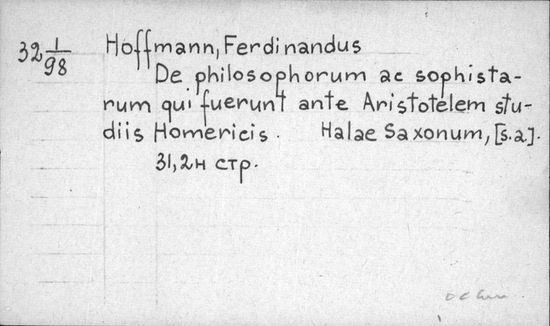 32 1/98
Hoffmann, Ferdinandus
De philosophorum ac sophista-
rum qui fuerunt ante Aristotelem stu-
diis Homericis. Halae Saxonum, [s.a].
31, 2н стр.